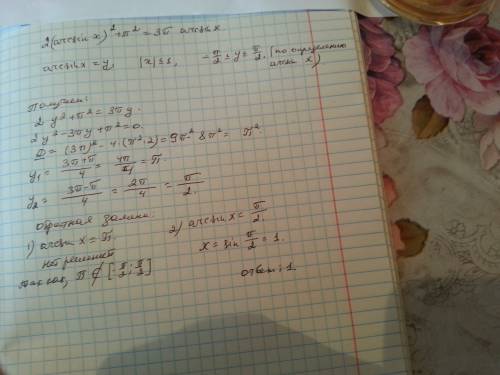 2(arcsin x)² + π² = 3π arcsin x
arcsin x = y, |x| ≤ 1, -π/2 ≤ y ≤ π/2, (по определению arcsin x)
Получаем:
2y² + π² = 3πy.
2y² - 3πy + π² = 0.
D = (3π)² - 4·(π²·2) = 9π² - 8π² = π².
y₁ = (3π+π)/4 = 4π/4 = π
y₂ = (3π-π)/4 = 2π/4 = π/2
обратная замена.
1) arcsin x = π. 2) arcsin x = π/2,
нет решений x = sin π/2 = 1.
так как, π ∉ [-π/2; π/2]
ответ: 1